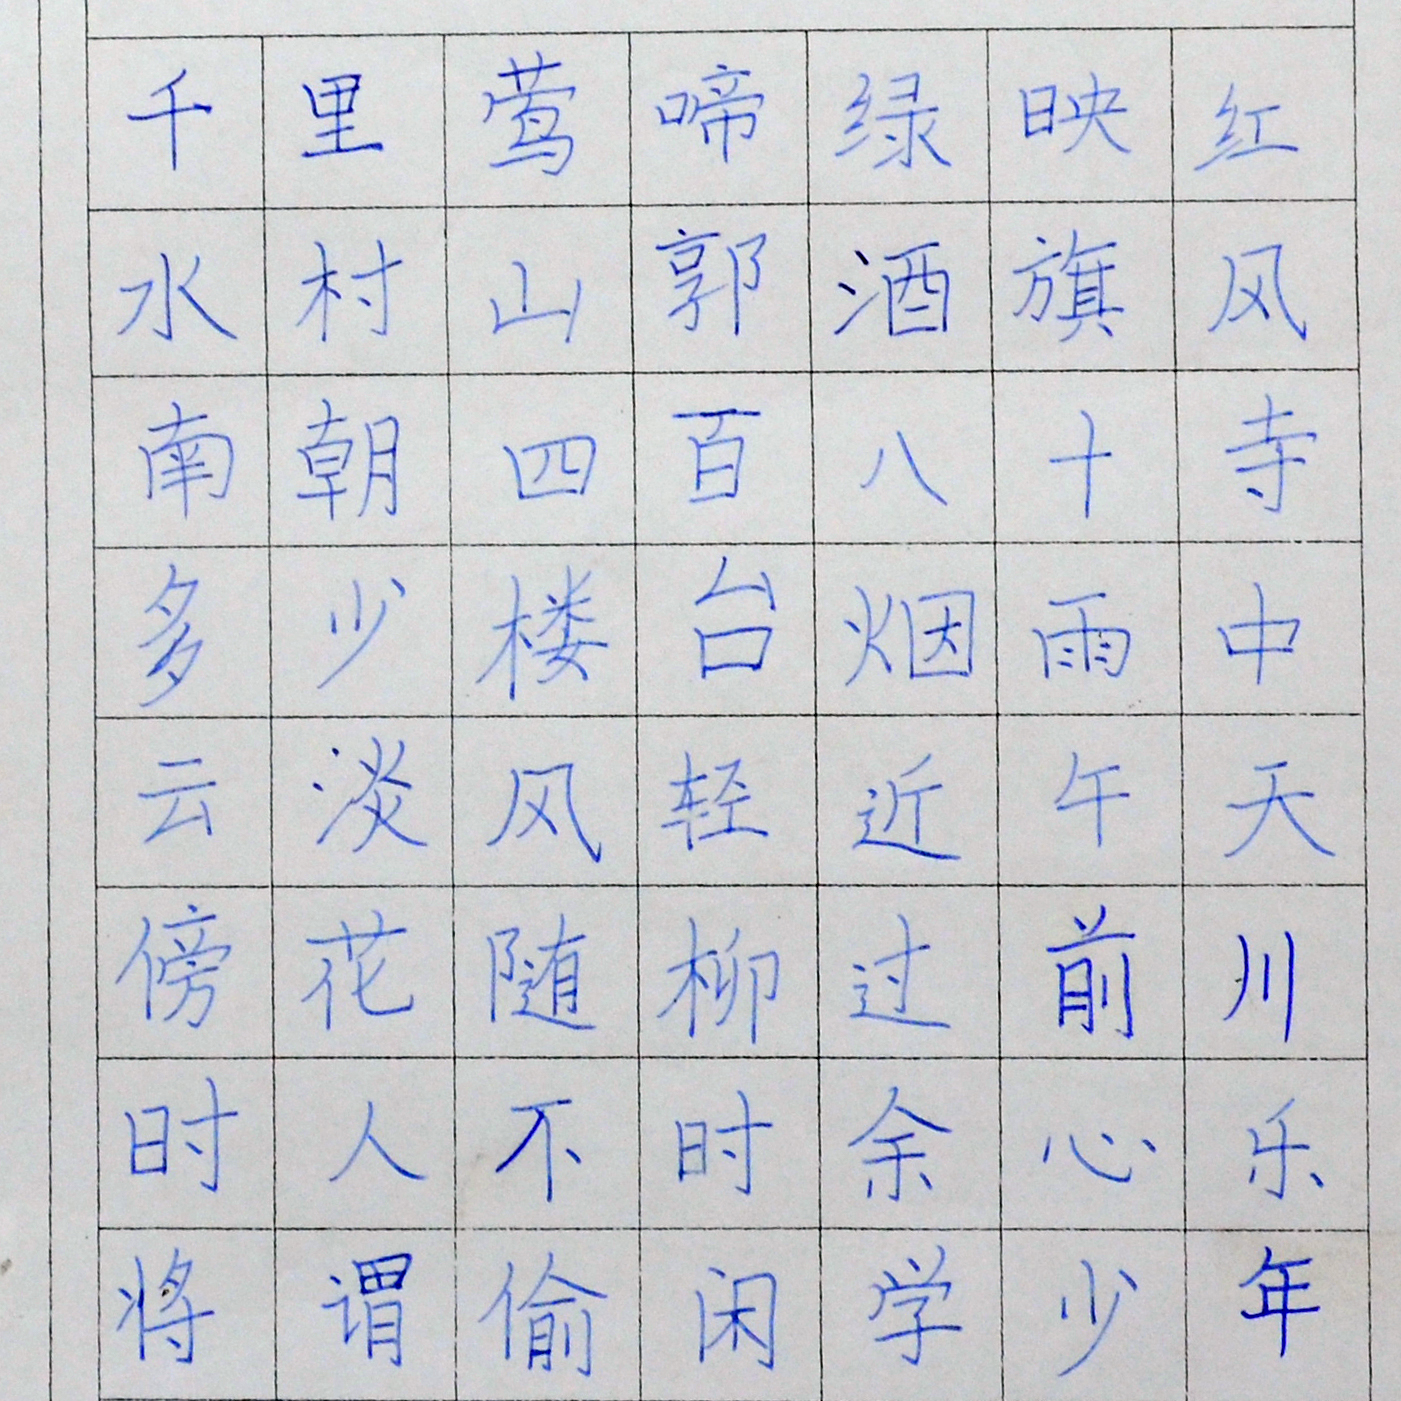 千里莺啼绿映红
水村山郭酒旗风
南朝四百八十寺
多少楼台烟雨中
云淡风轻近午天
傍花随柳过前川
时人不时余心乐
将谓偷闲学少年